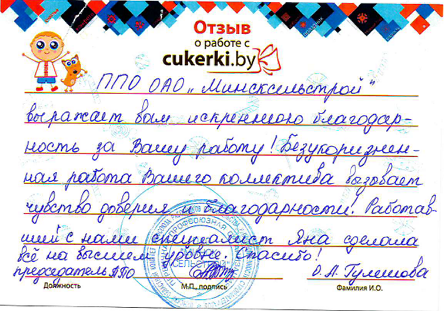 Отзыв
о работе с
cukerki.by
ППО ОАО „Минсксельстрой"
выражает вам искреннюю благодар-
ность за Вашу работу! Безукоризнен-
ная работа Вашего коллектива вызывает
чувство доверия и благодарности! Работав-
ший с нами специалист Яна сделала
всё на высшем уровне. Спасибо!
председатель ППО О.А. Гулешова
Должность М.П., подпись Фамилия И.О.